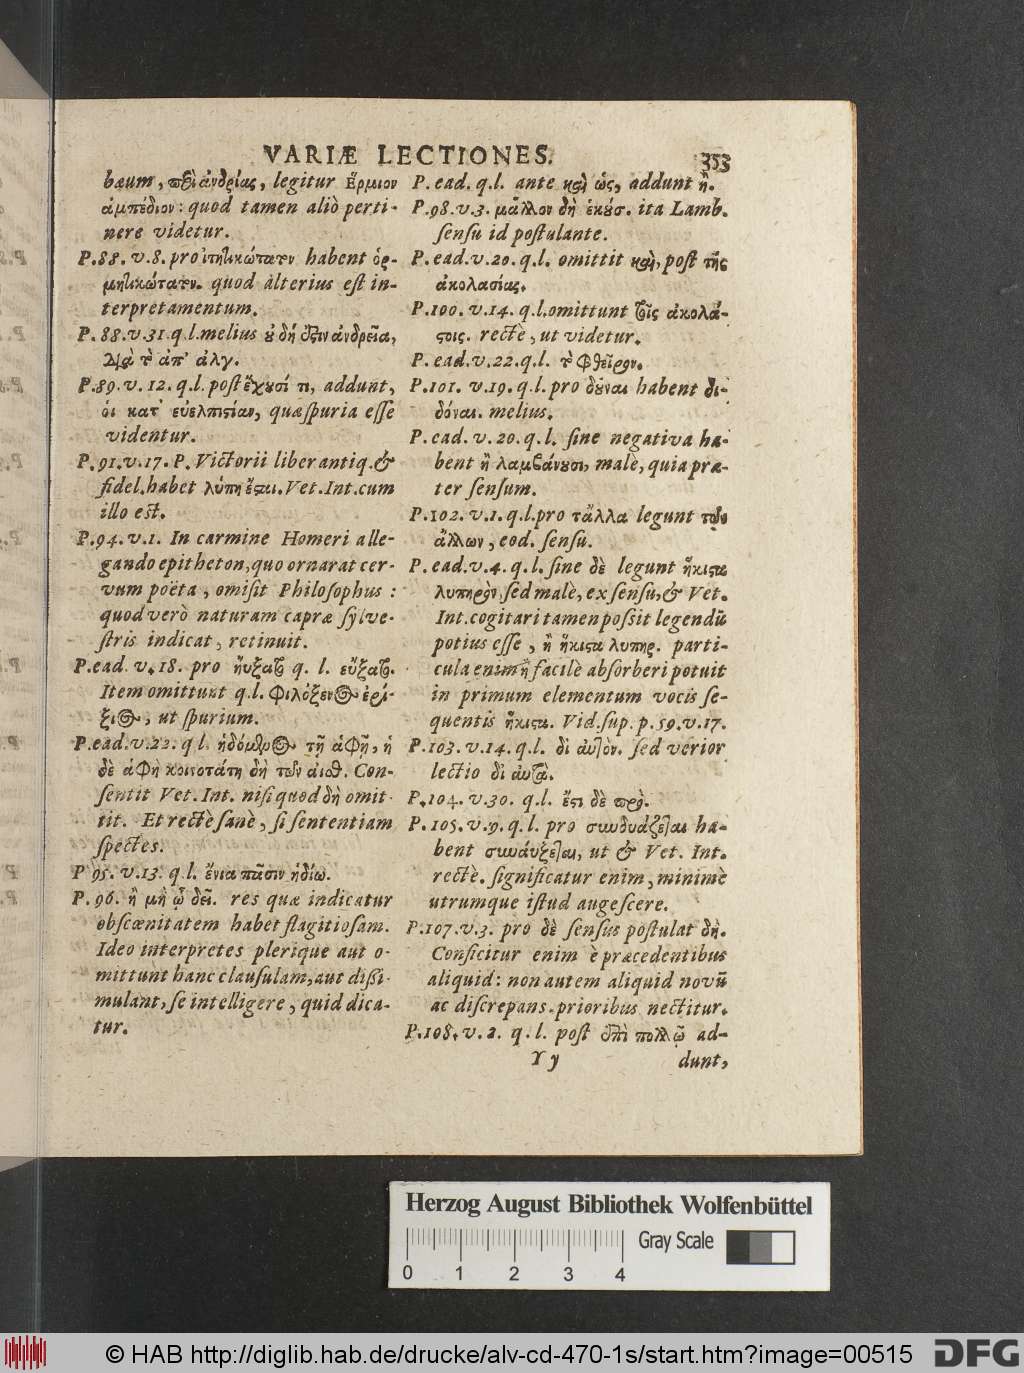 VARIÆ LECTIONES. 353
bæum, περὶ ἀνδρίας, legitur Ἕρμιον
ἀμπέδιον: quod tamen aliò perti-
nere videtur.
P. 88. v. 8. pro ἰτητικώτατον habent ὁρ-
μητικώτατον. quod alterius est in-
terpretamentum.
P. 88. v. 31. q. l. melius οὐ δή ἐστιν ἀνδρεῖα,
Διὰ τὸ ἀπ' ἀλγ.
P. 89. v. 12. q. l. post ἔχουσί τι, addunt,
οἱ κατ' εὐελπιστίαν, quæ spuria esse
videntur.
P. 91. v. 17. P. Victorii liber antiq. &
fidel. habet λύπη ἔσται. Vet. Int. cum
illo est.
P. 94. v. 1. In carmine Homeri alle-
gando epitheton, quo ornarat cer-
vum poëta, omisit Philosophus:
quod verò naturam capræ sylve-
stris indicat, retinuit.
P. ead. v. 18. pro ηὔξατο q. l. εὔξατο.
Item omittunt q. l. Φιλόξενος ἐρύ-
ξιος, ut spurium.
P. ead. v. 22. q. l. ἡδόμενος τῇ ἁφῇ, ἡ
δὲ ἁφὴ κοινοτάτη δὴ τῶν αἰσθ. Con-
sentit Vet. Int. nisi quod δὴ omit-
tit. Et rectè sanè, si sententiam
spectes.
P. 95. v. 13. q. l. ἔνια πᾶσιν ἡδίω.
P. 96. ἢ μὴ ᾧ δεῖ. res quæ indicatur
obscœnitatem habet flagitiosam.
Ideo interpretes plerique aut o-
mittunt hanc clausulam, aut dißi-
mulant, se intelligere, quid dica-
tur.
P. ead. q. l. ante καὶ ὡς, addunt ἢ.
P. 98. v. 3. μᾶλλον δὴ ἑκουσ. ita Lamb.
sensu id postulante.
P. ead. v. 20. q. l. omittit καὶ, post τῆς
ἀκολασίας.
P. 100. v. 14. q. l. omittunt τοῖς ἀκολά-
στοις. rectè, ut videtur.
P. ead. v. 22. q. l. τὸ Φθεῖρον.
P. 101. v. 19. q. l. pro δοῦναι habent δι-
δόναι. melius.
P. ead. v. 20. q. l. sine negativa ha-
bent ἢ λαμβάνουσι, malè, quia præ-
ter sensum.
P. 102. v. 1. q. l. pro τἄλλα legunt τῶν
ἄλλων, eod. sensu.
P. ead. v. 4. q. l. sine δὲ legunt ἥκιστα
λυπηρὸν, sed malè, ex sensu, & Vet.
Int. cogitari tamen possit legendū
potius esse, ἢ ἥκιστα λυπηρ. parti-
cula enim ἢ facilè absorberi potuit
in primum elementum vocis se-
quentis ἥκιστα. Vid. sup. p. 59. v. 17.
P. 103. v. 14. q. l. δι αὐτὸν. sed verior
lectio δι αὑτὸ.
P. 104. v. 30. q. l. ἔτι δὲ πρὸ.
P. 105. v. 9. q. l. pro συνδυάζεται ha-
bent συναύξεται, ut & Vet. Int.
rectè. significatur enim, minimè
utrumque istud augescere.
P. 107. v. 3. pro δὲ sensus postulat δὴ.
Conficitur enim è præcedentibus
aliquid: non autem aliquid novū
ac discrepans. prioribus nectitur.
P. 108. v. 2. q. l. post ἐπὶ πολλῷ ad-
Y y dunt,
Herzog August Bibliothek Wolfenbüttel
Gray Scale
0 1 2 3 4
© HAB http://diglib.hab.de/drucke/alv-cd-470-1s/start.htm?image=00515 DFG